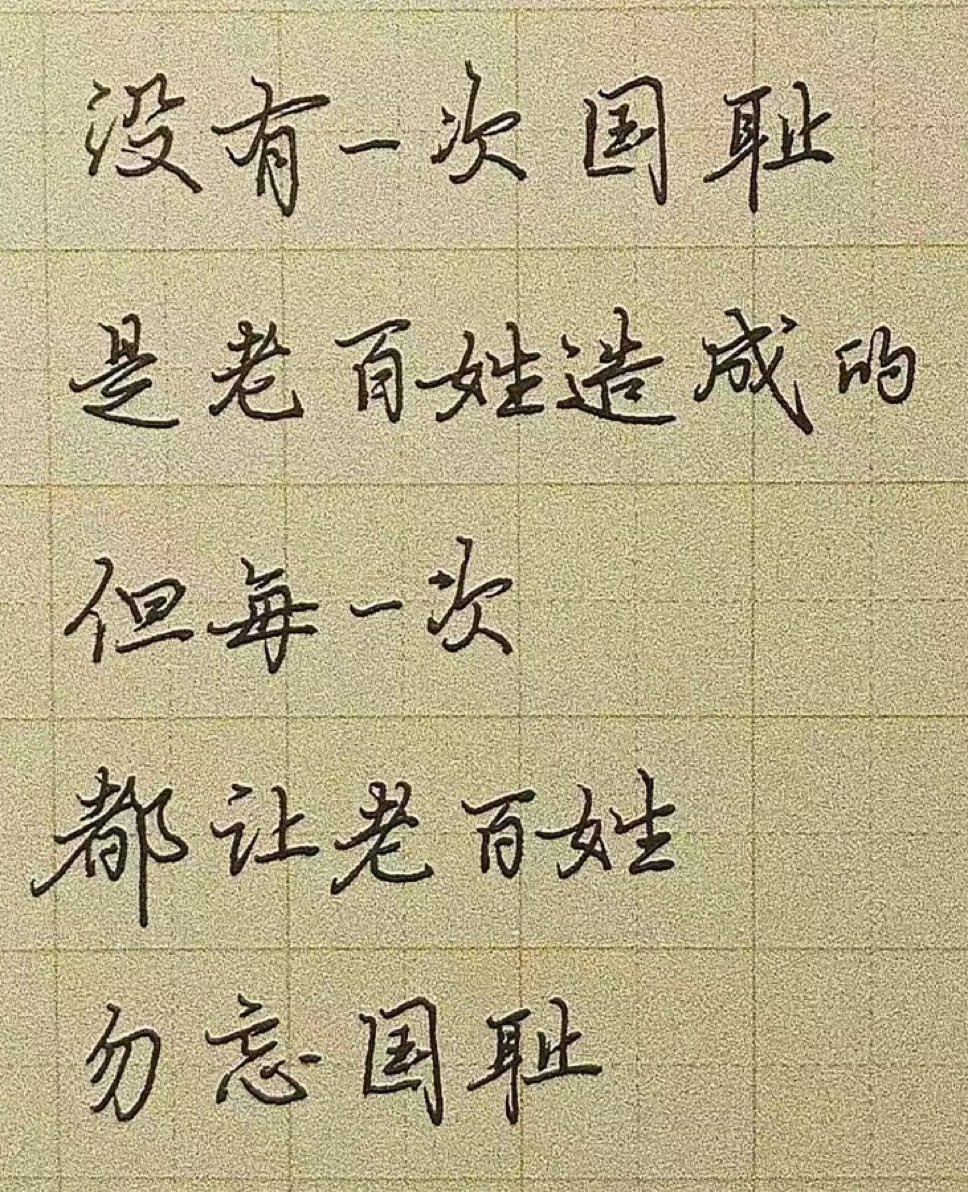 没有一次国耻
是老百姓造成的
但每一次
都让老百姓
勿忘国耻